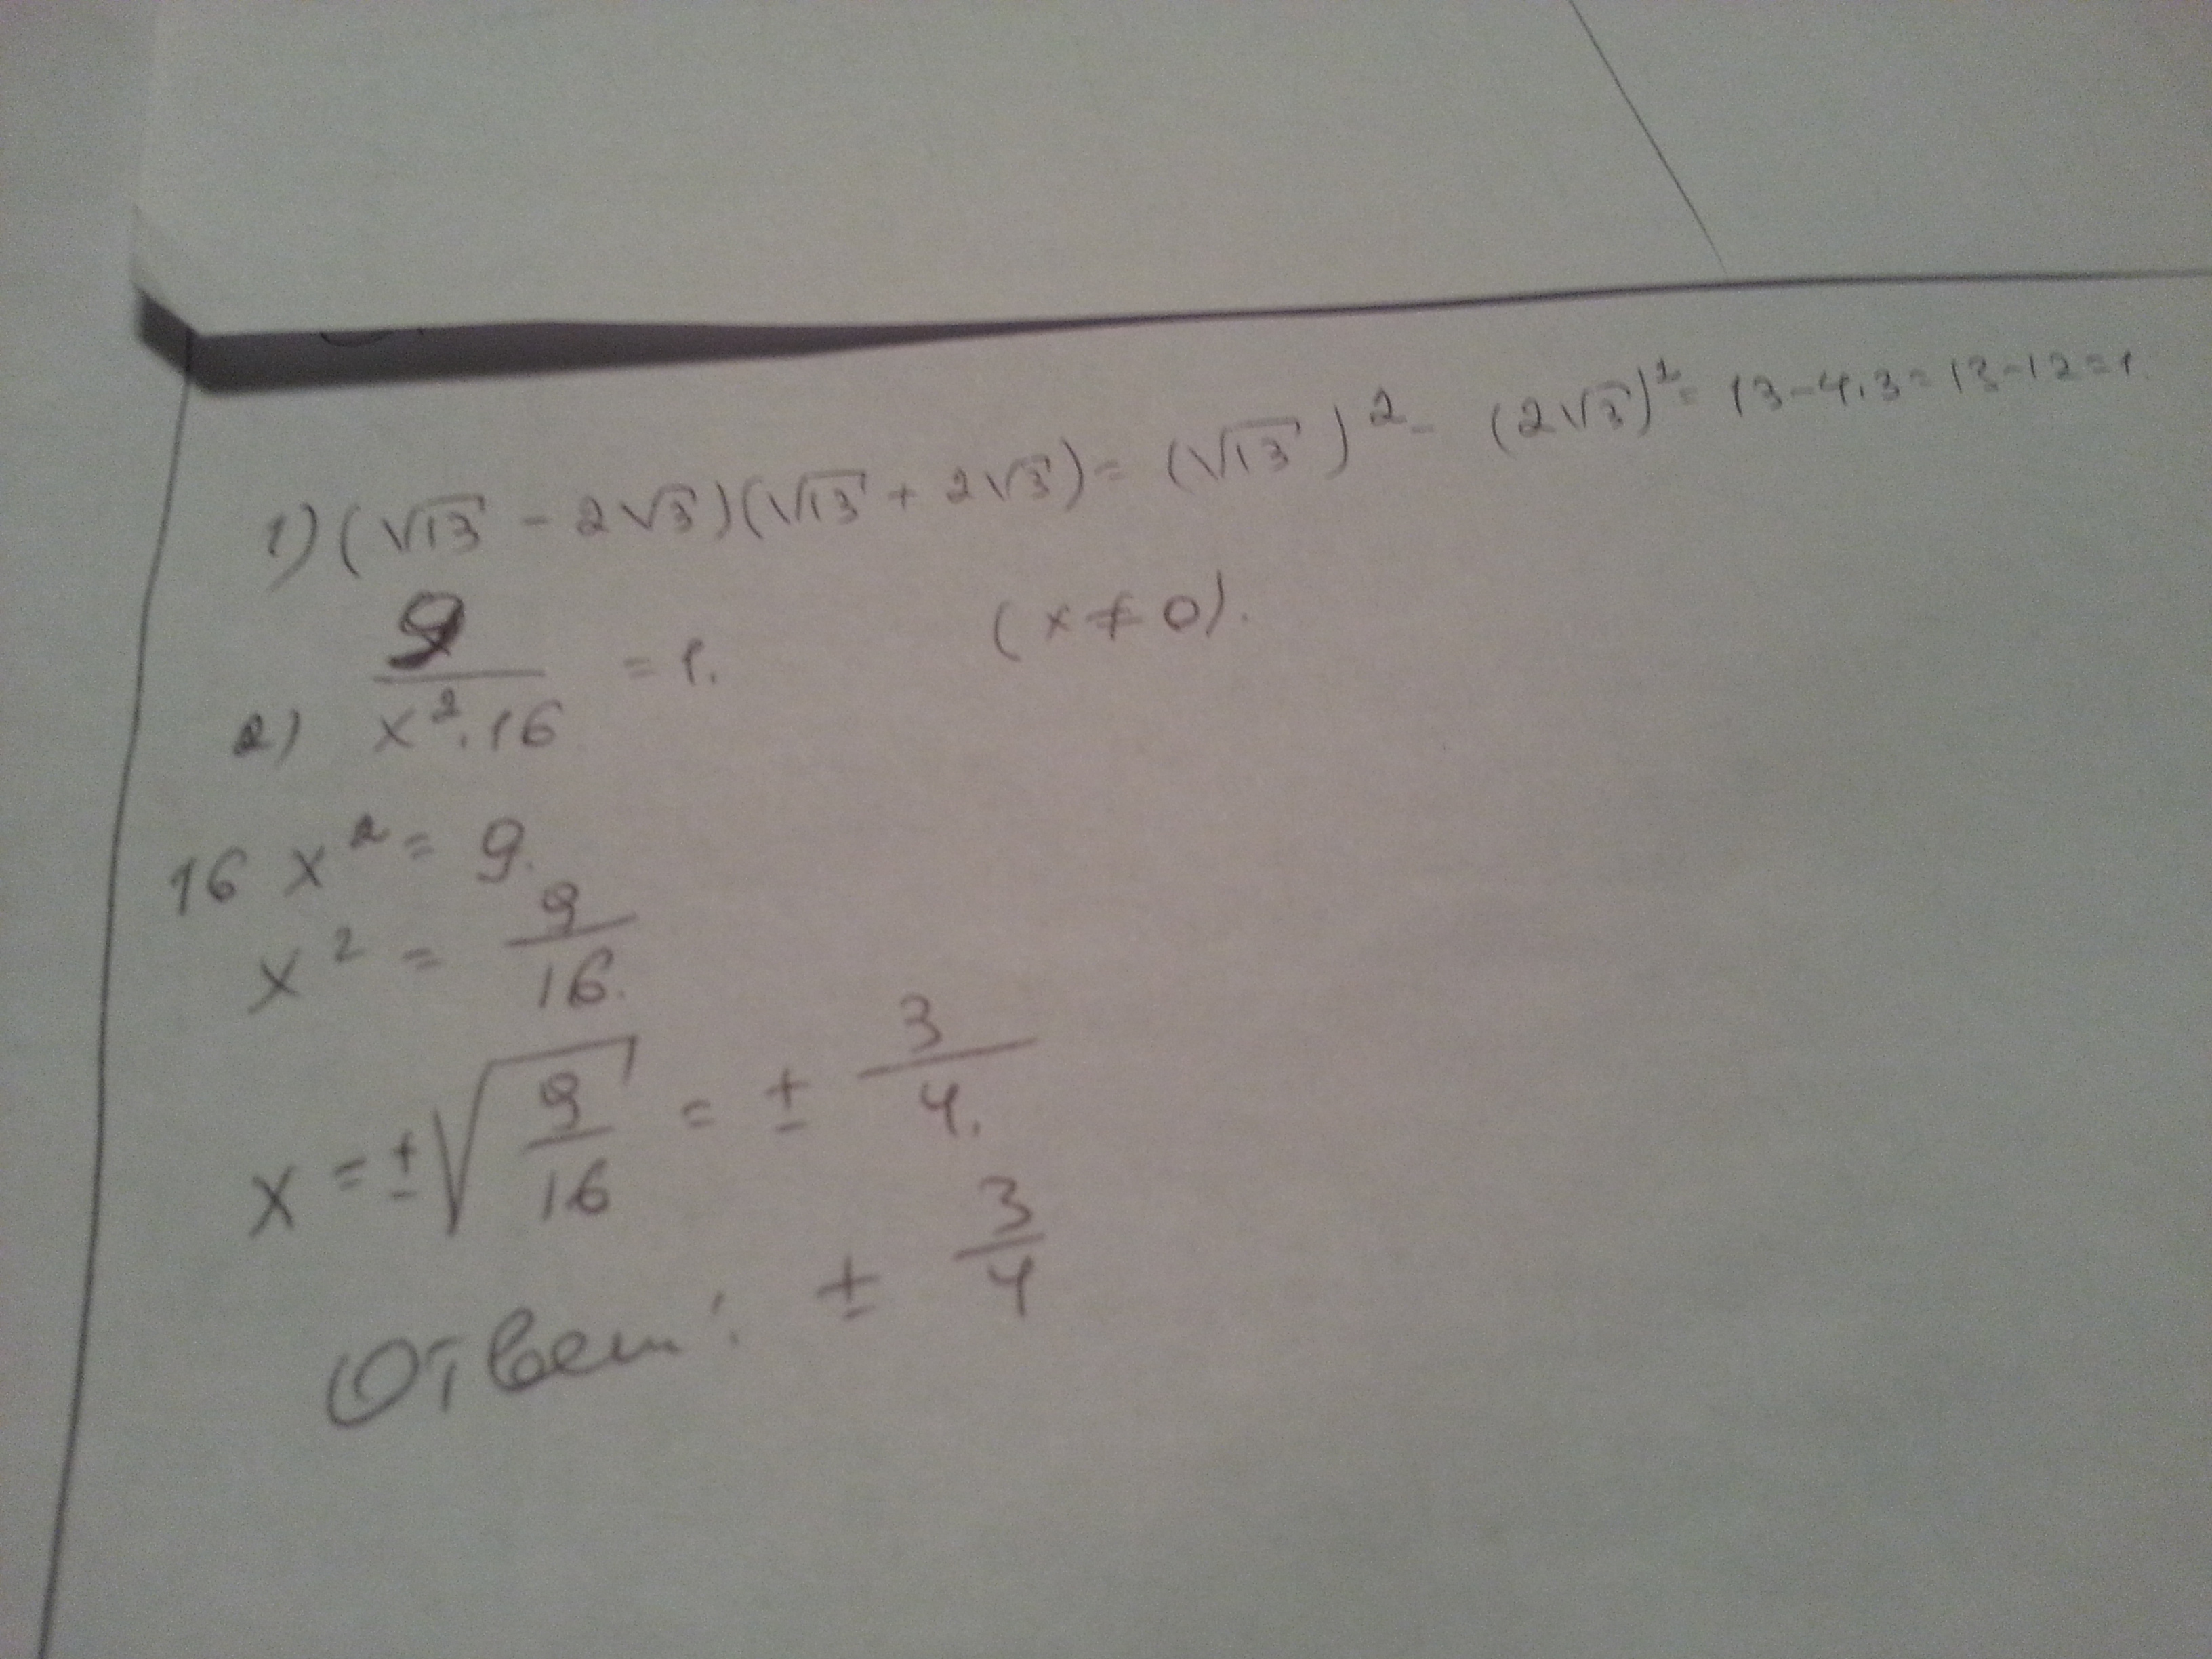 1) (√13 - 2√3)(√13 + 2√3) = (√13)² - (2√3)² = 13-4·3 = 13-12=1.
2) 9/(x²·16) = 1. (x ≠ 0).
16x² = 9.
x² = 9/16.
x = ±√(9/16) = ± 3/4.
Ответ: ± 3/4